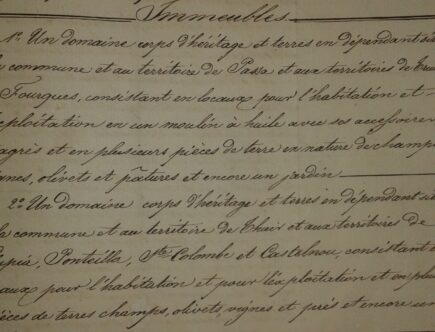 Immeubles
1° Un domaine corps d'héritage et terres en dépendant sis
commune et au territoire de Passa et aux territoires de
Fourques, consistant en locaux pour l'habitation et
ploitation en un moulin à huile avec ses accessoires
agrès et en plusieurs pièces de terre en nature de champs
gnes, olivets et pâtures et encore un jardin
2° Un domaine corps d'héritage et terres en dépendant sis
la commune et au territoire de Thuir et aux territoires de
upia, Ponteilla, Ste Colombe et Castelnou, consistant e
caux pour l'habitation et pour l'exploitation et en plu
ièces de terres champs, olivets, vignes et prés et encore un